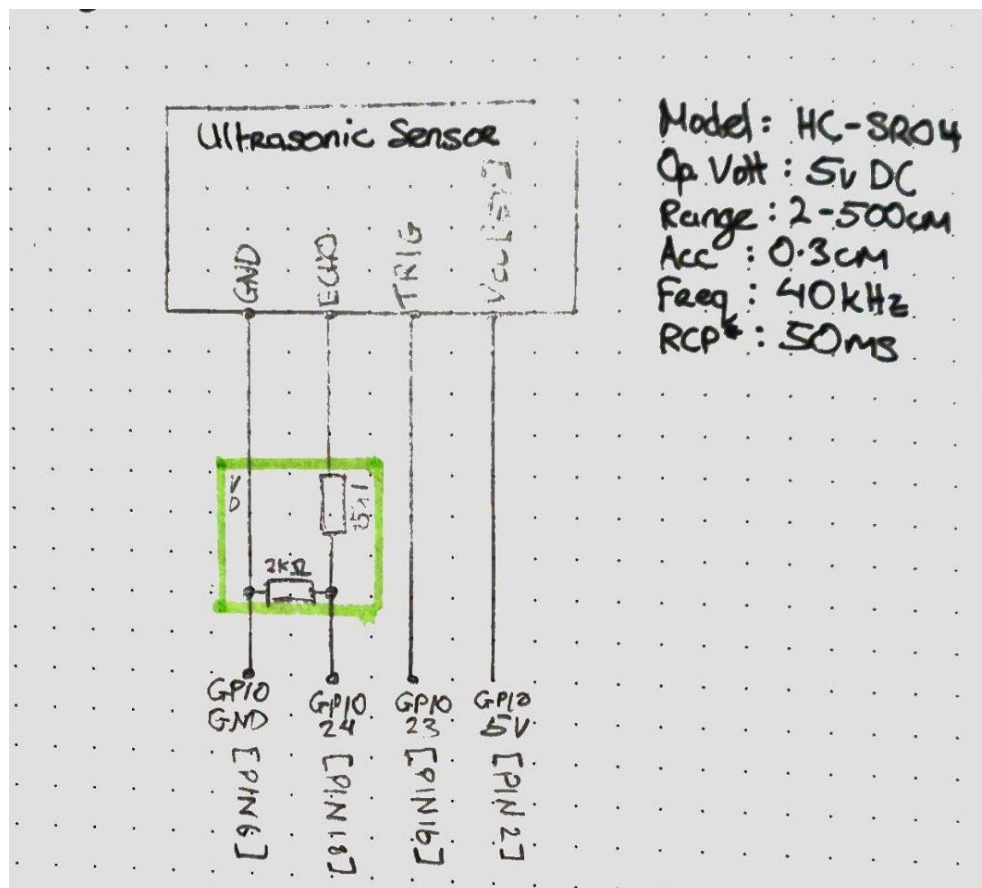 Ultrasonic Sensor
GND
ECHO
TRIG
Model: HC-SR04
Op. Volt: 5v DC
Range: 2-500cm
Acc: 0.3cm
Freq: 40kHz
RCP*: 50ms
VD
2kΩ
GPIO GND [PIN6]
GPIO 24 [PIN18]
GPIO 23 [PIN16]
GPIO 5V [PIN2]